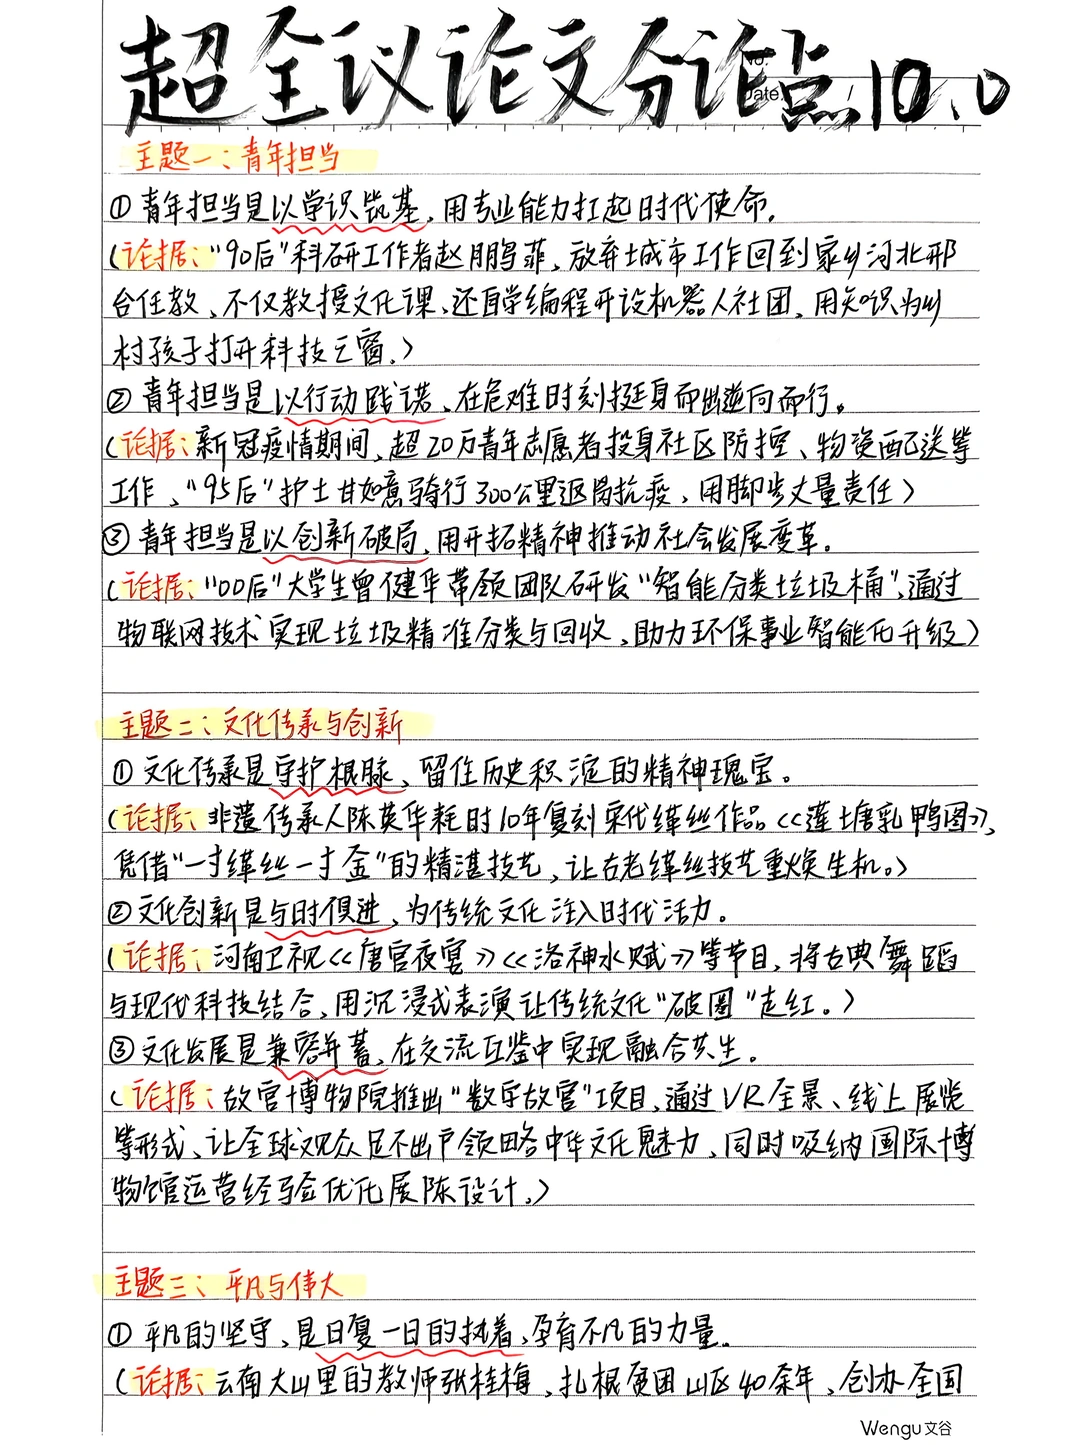 超全议论文分论点10.0
No.
Date. /
主题一：青年担当
①青年担当是以学识筑基，用专业能力扛起时代使命。
(论据："90后"科研工作者赵鹏菲，放弃城市工作回到家乡河北邢
台任教，不仅教授文化课，还自学编程开设机器人社团，用知识为乡
村孩子打开科技之窗。)
②青年担当是以行动践诺，在危难时刻挺身而出逆向而行。
(论据：新冠疫情期间，超20万青年志愿者投身社区防控、物资配送等
工作，"95后"护士甘如意骑行300公里返岗抗疫，用脚步丈量责任)
③青年担当是以创新破局，用开拓精神推动社会发展变革。
(论据："00后"大学生曾健华带领团队研发"智能分类垃圾桶"，通过
物联网技术实现垃圾精准分类与回收，助力环保事业智能化升级)
主题二：文化传承与创新
①文化传承是守护根脉，留住历史积淀的精神瑰宝。
(论据：非遗传承人陈英华耗时10年复刻宋代缂丝作品《莲塘乳鸭图》，
凭借"一寸缂丝一寸金"的精湛技艺，让古老缂丝技艺重焕生机。)
②文化创新是与时俱进，为传统文化注入时代活力。
(论据：河南卫视《唐宫夜宴》《洛神水赋》等节目，将古典舞蹈
与现代科技结合，用沉浸式表演让传统文化"破圈"走红。)
③文化发展是兼容并蓄，在交流互鉴中实现融合共生。
(论据：故宫博物院推出"数字故宫"项目，通过VR全景、线上展览
等形式，让全球观众足不出户领略中华文化魅力，同时吸纳国际博
物馆运营经验优化展陈设计。)
主题三：平凡与伟大
①平凡的坚守，是日复一日的执着，孕育不凡的力量。
(论据：云南大山里的教师张桂梅，扎根贫困山区40余年，创办全国
Wengu文谷